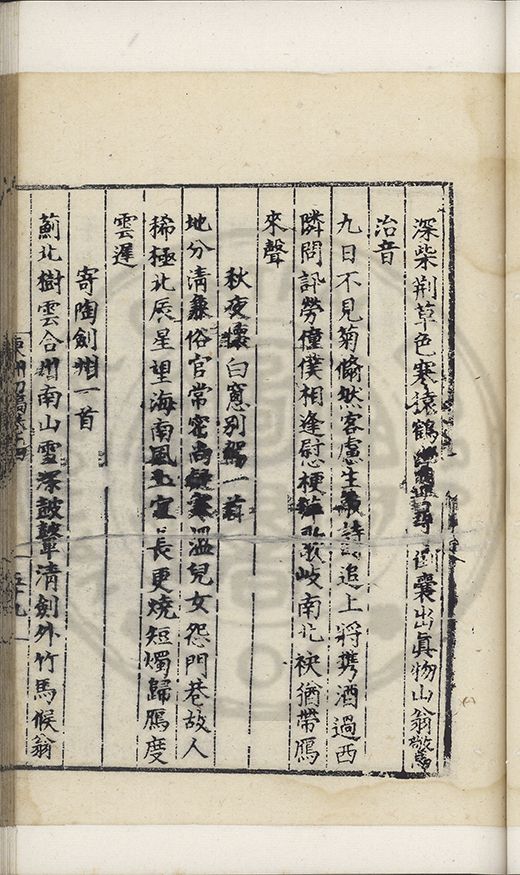 深柴荆草色寒猿鶴尋囊出眞物山翁敲
治音
九日不見菊翛然客慮生詩追上將携酒過西
隣問訊勞僮僕相逢慰梗歧南北袂猶帶鴈
來聲
秋夜懷白窻別駕一首
地分清俗官常密尚寒溫兒女怨門巷故人
稀極北辰星望海南風土宜長更燒短燭歸鴈度
雲遲
寄陶劍州一首
薊北樹雲合州南山雪深鼓鼙清劍外竹馬候翁
五十九